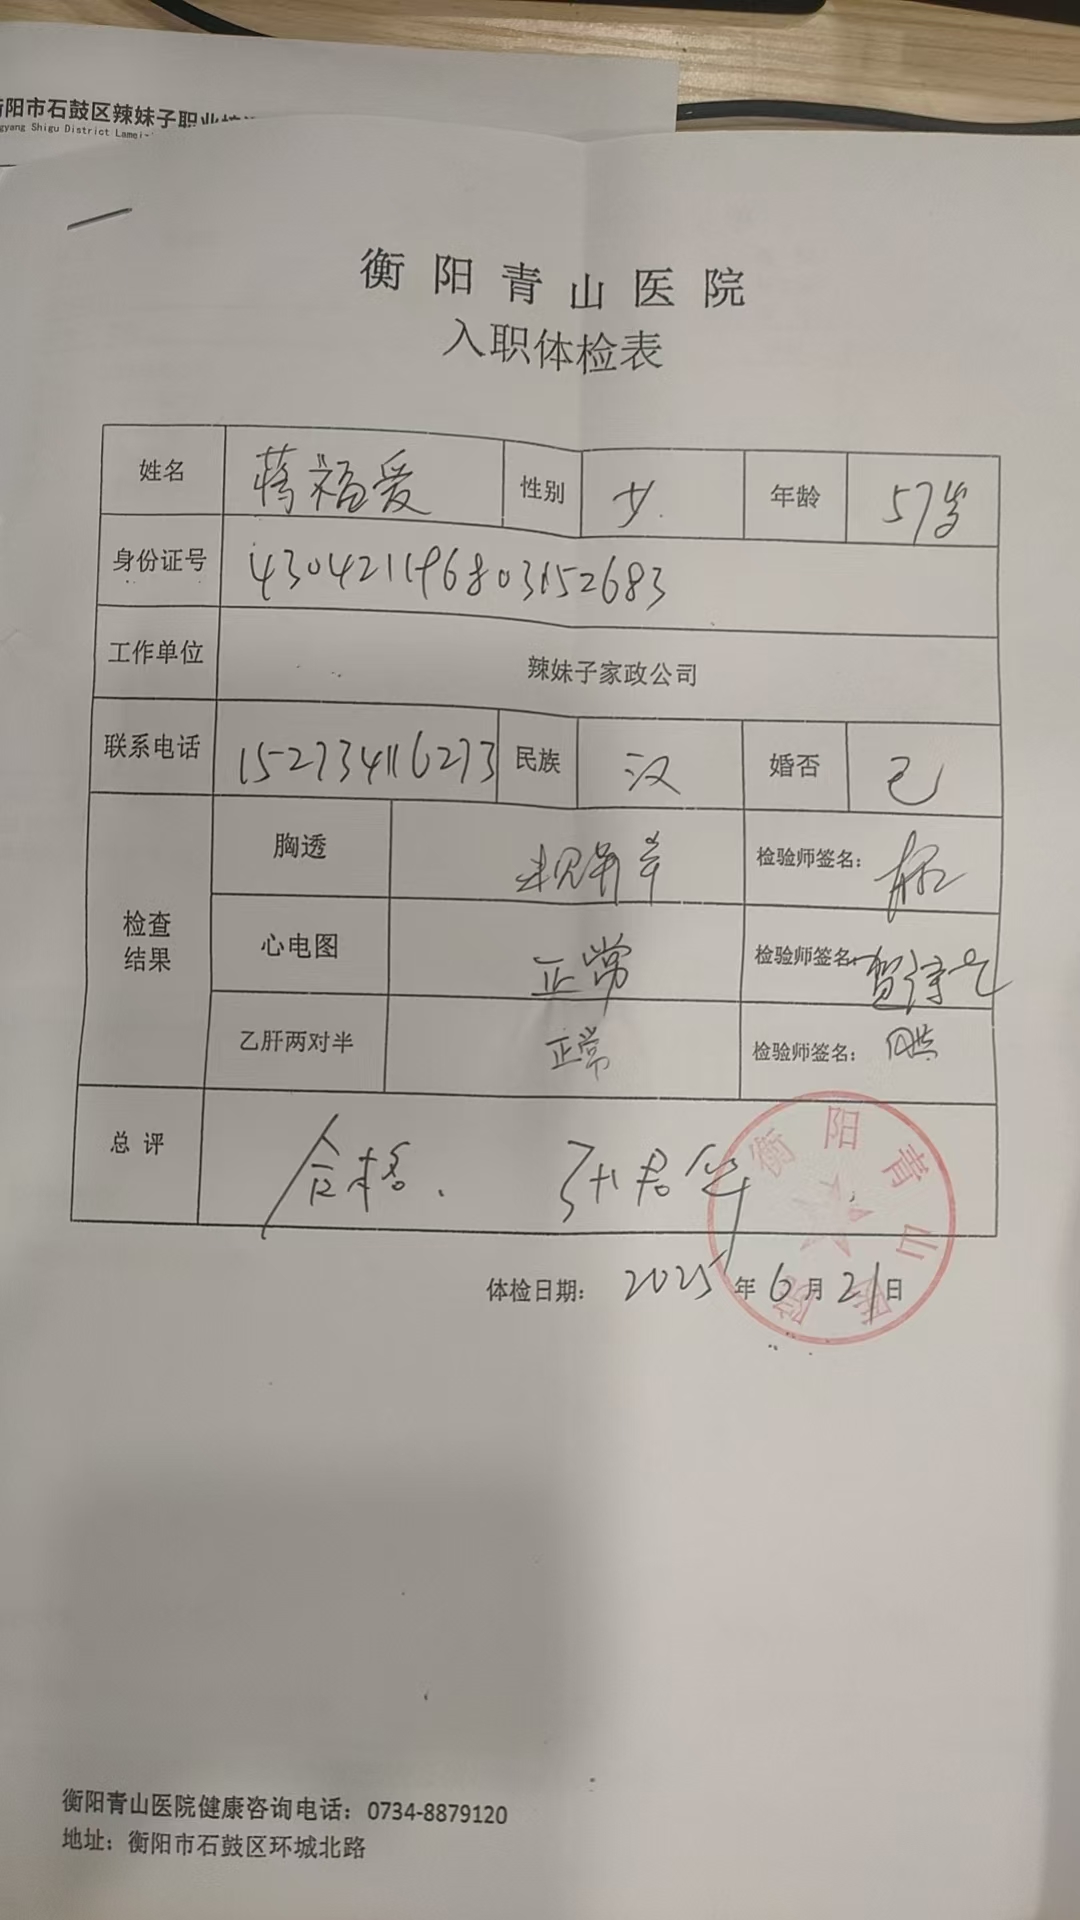 阳市石鼓区辣妹子职业
gyang Shigu District Lamei
衡阳青山医院
入职体检表
姓名 蒋福爱 性别 女 年龄 57岁
身份证号 430421196803152683
工作单位 辣妹子家政公司
联系电话 152734116273 民族 汉 婚否 已
检查结果 胸透 未见异常 检验师签名:
心电图 正常 检验师签名:
乙肝两对半 正常 检验师签名:
总评 合格、
衡阳青山医院
体检日期: 2025年6月21日
衡阳青山医院健康咨询电话: 0734-8879120
地址: 衡阳市石鼓区环城北路